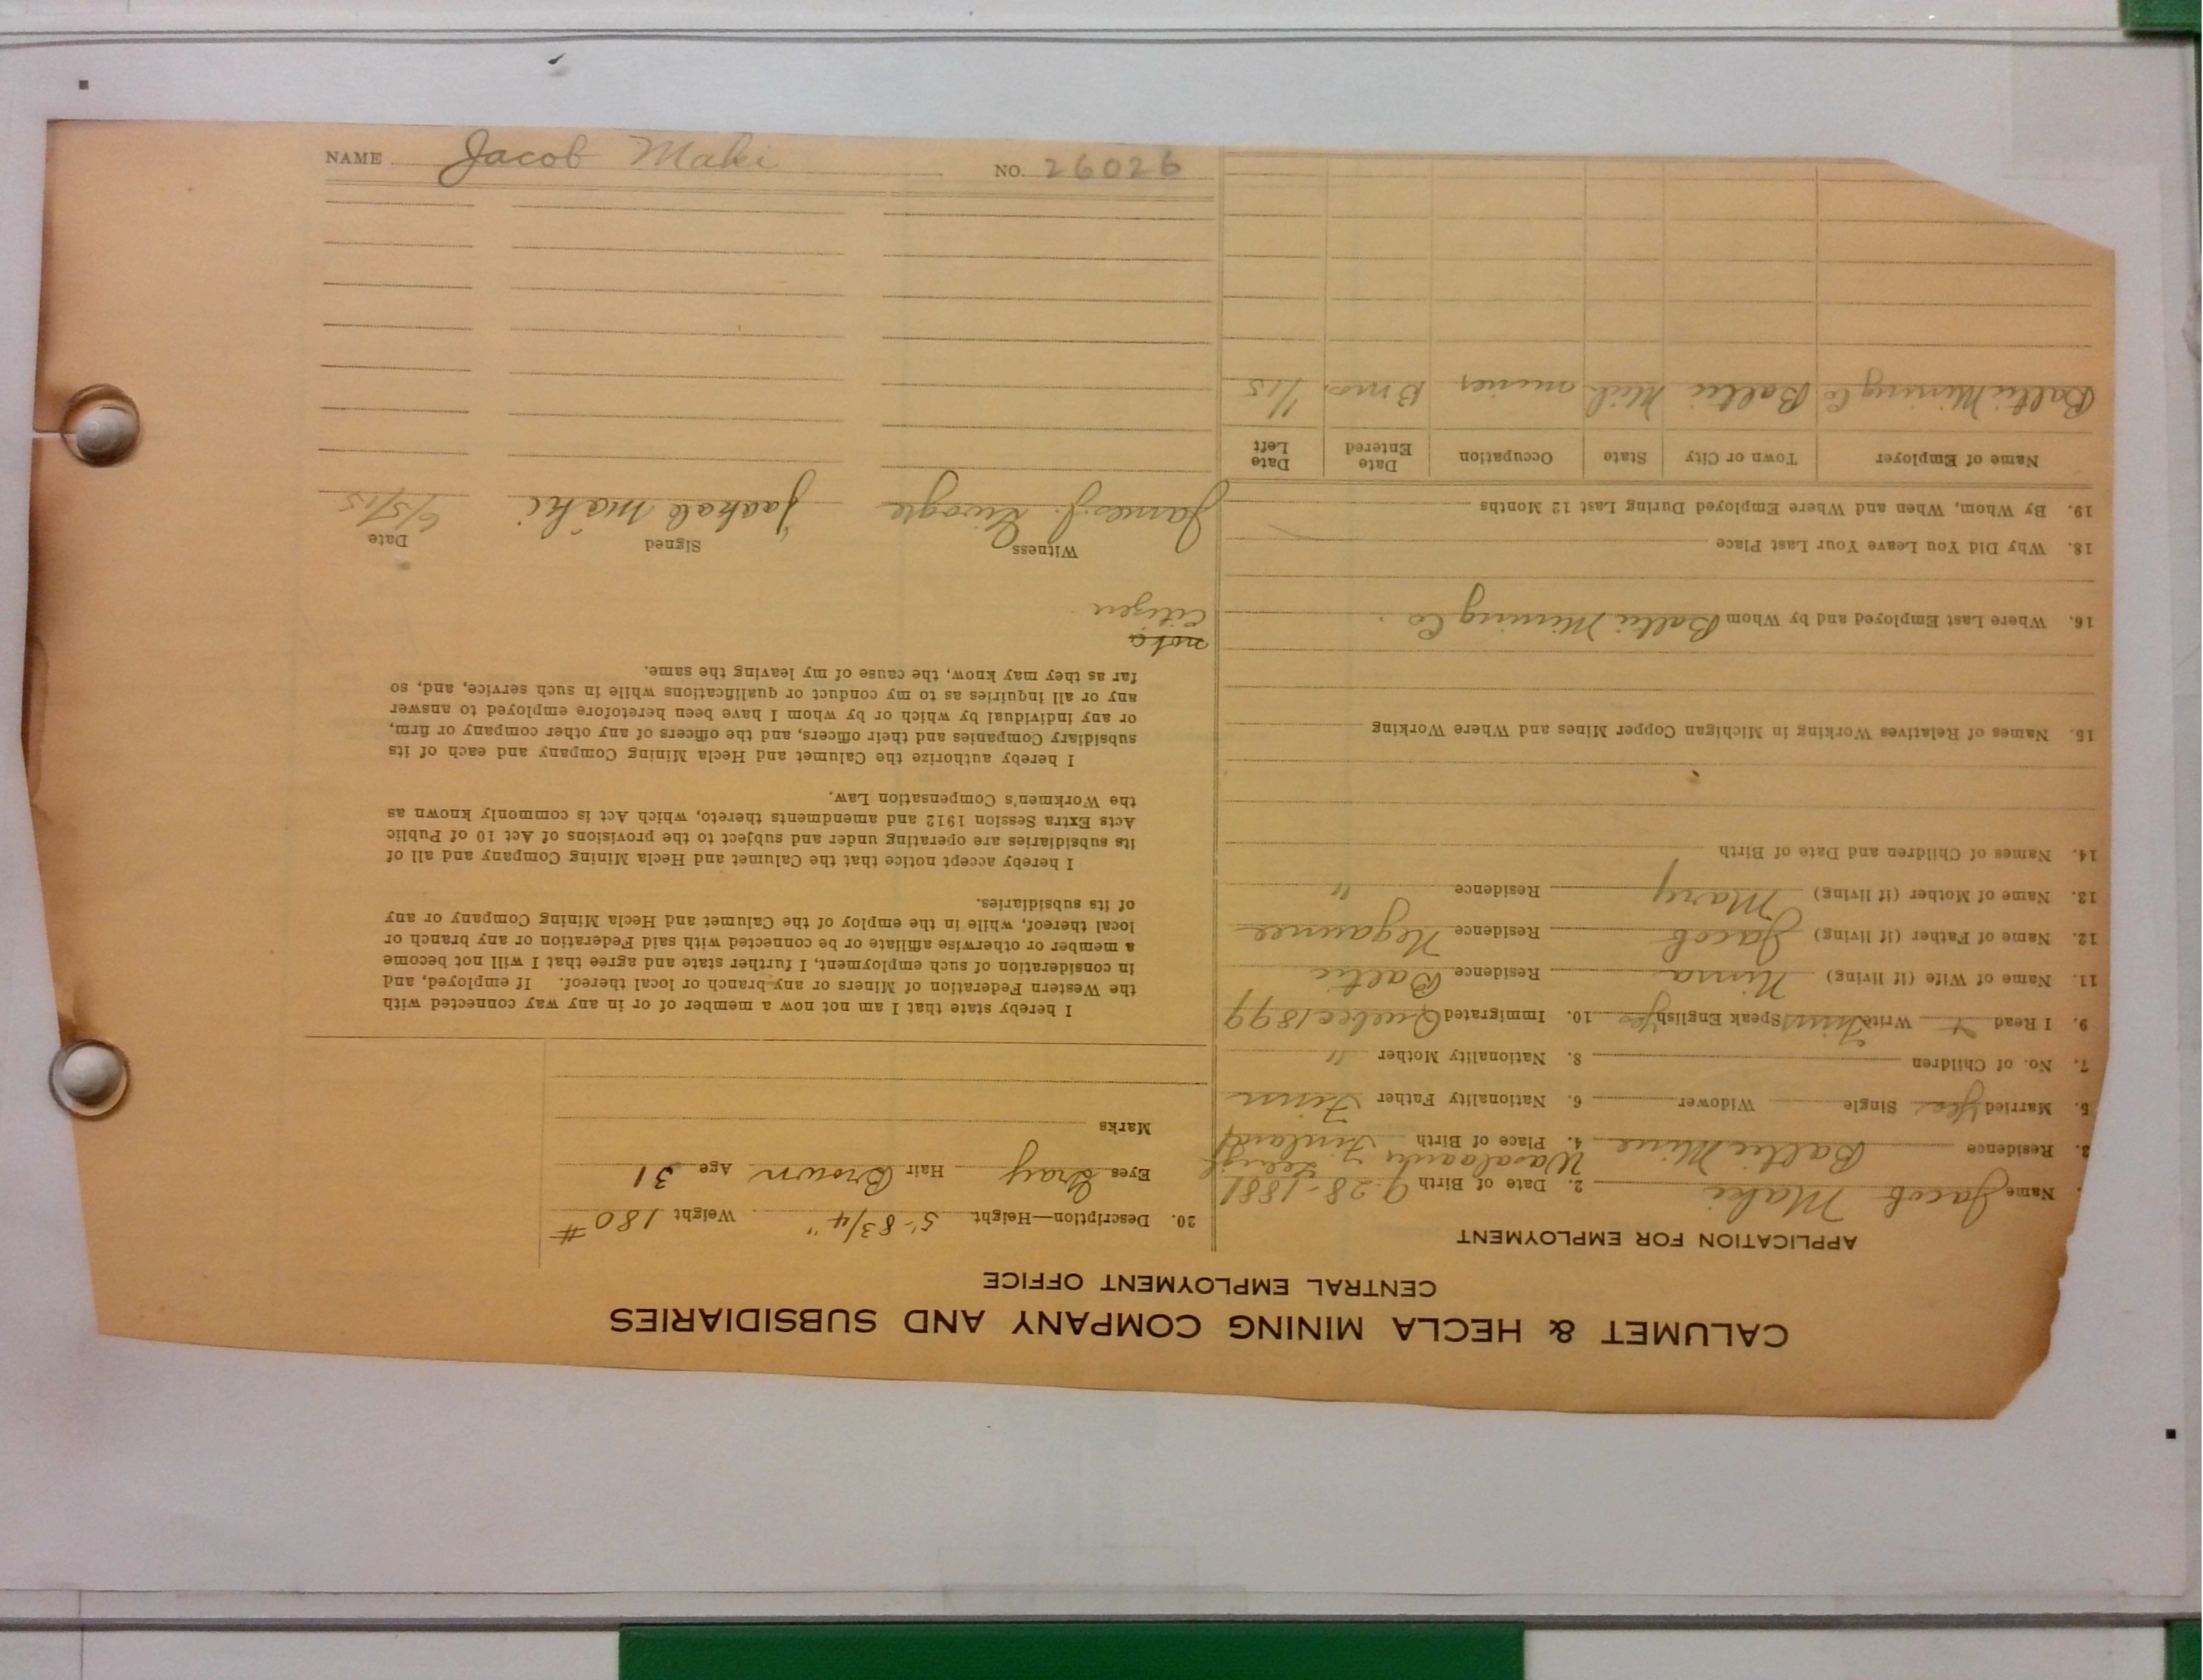 NAME Jacob Maki NO. 26026
CALUMET & HECLA MINING COMPANY AND SUBSIDIARIES
CENTRAL EMPLOYMENT OFFICE
APPLICATION FOR EMPLOYMENT
Name Jacob Maki 2. Date of Birth 9-28-1881
3. Residence Baltic Mine 4. Place of Birth Finland
5. Married Yes Single Widower 6. Nationality Father Finn
7. No. of Children 8. Nationality Mother "
9. I Read Write Finn Speak English Yes 10. Immigrated Quebec 1899
11. Name of Wife (if living) Residence Baltic
12. Name of Father (if living) Jacob Residence Negaunee
13. Name of Mother (if living) Mary Residence "
14. Names of Children and Date of Birth
15. Names of Relatives Working in Michigan Copper Mines and Where Working
16. Where Last Employed and by Whom Baltic Mining Co.
18. Why Did You Leave Your Last Place
19. By Whom, When and Where Employed During Last 12 Months
Name of Employer Town or City State Occupation Date Entered Date Left
Baltic Mining Co Baltic Mich miner mos. 1/15
20. Description—Height 5'-8 3/4" Weight 180 #
Eyes Gray Hair Brown Age 31
Marks
I hereby state that I am not now a member of or in any way connected with
the Western Federation of Miners or any branch or local thereof. If employed, and
in consideration of such employment, I further state and agree that I will not become
a member or otherwise affiliate or be connected with said Federation or any branch or
local thereof, while in the employ of the Calumet and Hecla Mining Company or any
of its subsidiaries.
I hereby accept notice that the Calumet and Hecla Mining Company and all of
its subsidiaries are operating under and subject to the provisions of Act 10 of Public
Acts Extra Session 1912 and amendments thereto, which Act is commonly known as
the Workmen's Compensation Law.
I hereby authorize the Calumet and Hecla Mining Company and each of its
subsidiary Companies and their officers, and the officers of any other company or firm,
or any individual by which or by whom I have been heretofore employed to answer
any or all inquiries as to my conduct or qualifications while in such service, and, so
far as they may know, the cause of my leaving the same.
not a
Citizen
Witness Signed Date
James J. Jaakob Mäki 6/5/15